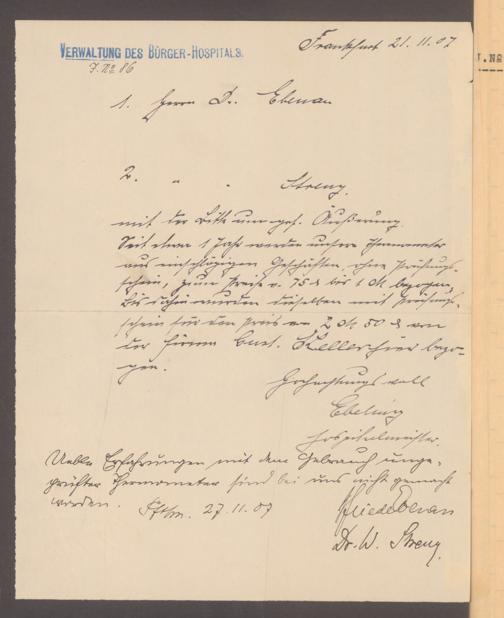 VERWALTUNG DES BÜRGER-HOSPITALS.
J. No 86
Frankfurt 21.11.07
1. Herrn Dr. Ebenau
2. " " Streng
mit der Bitte um gef. Äußerung.
Seit etwa 1 Jahr werden unsere Thermometer
aus einschlägigen Geschäften ohne Prüfungs-
schein, zum Preise v. 75 ₰ bis 1 M. bezogen,
bis dahin wurden dieselben mit Prüfungs-
schein für den Preis von 2 M 50 ₰ von
der Firma Gust. Keller hier bezo-
gen.
Hochachtungsvoll
Ebeling
Hospitalmeister.
Ueble Erfahrungen mit dem Gebrauch unge-
prüfter Thermometer sind bei uns nicht gemacht
worden. Ffm. 27.11.07
Friedebenau
Dr. W. Streng.
J. No